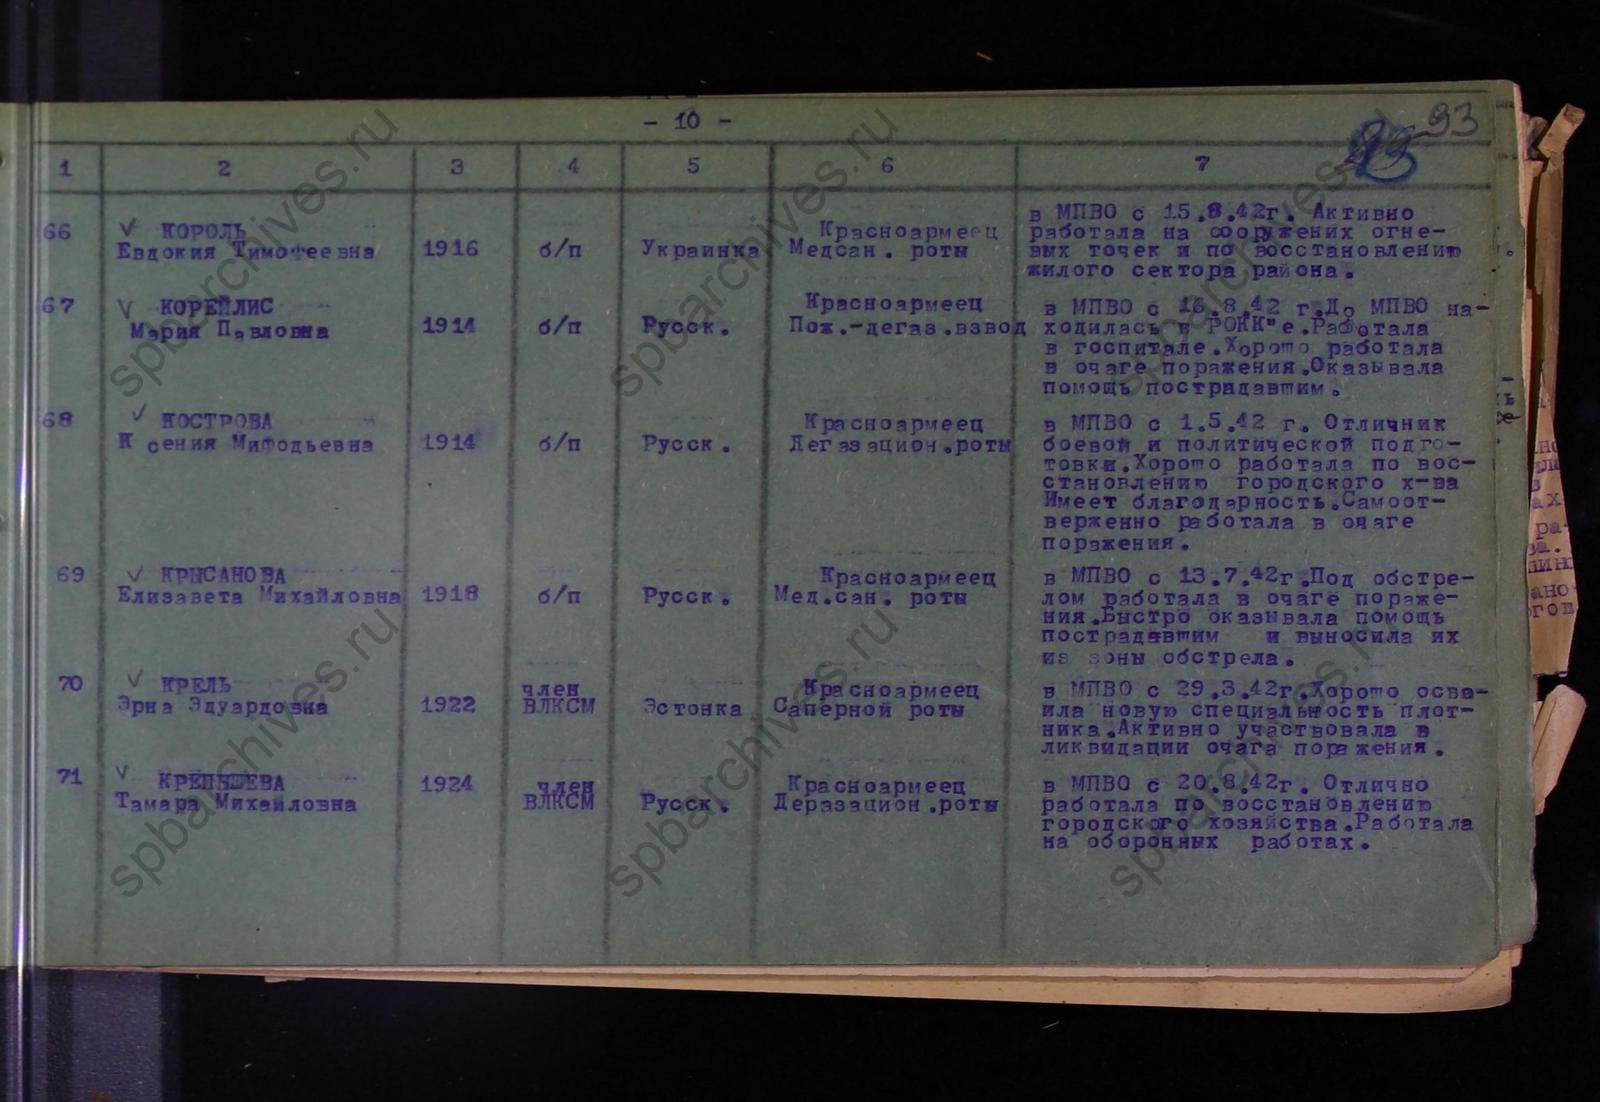 - 10 -
93
1 2 3 4 5 6 7
66 КОРОЛЬ
Евдокия Тимофеевна 1916 б/п Украинка Красноармеец
Медсан. роты
в МПВО с 15.8.42г. Активно
работала на сооружених огне-
вых точек и по восстановлению
жилого сектора района.
67 КОРЕЙЛИС
Мария Павловна 1914 б/п Русск. Красноармеец
Пож.-дегаз.взвод
в МПВО с 16.8.42 г.До МПВО на-
ходилась в РОКК"е.Работала
в госпитале.Хорошо работала
в очаге поражения.Оказывала
помощь пострадавшим.
68 КОСТРОВА
Ксения Мифодьевна 1914 б/п Русск. Красноармеец
Дегазацион.роты
в МПВО с 1.5.42 г. Отличник
боевой и политической подго-
товки.Хорошо работала по вос-
становлению городского х-ва
Имеет благодарность.Самоот-
верженно работала в очаге
поражения.
69 КРЫСАНОВА
Елизавета Михайловна 1918 б/п Русск. Красноармеец
Мед.сан. роты
в МПВО с 13.7.42г.Под обстре-
лом работала в очаге пораже-
ния.Быстро оказывала помощь
пострадавшим и выносила их
из зоны обстрела.
70 КРЕЛЬ
Эрна Эдуардовна 1922 член
ВЛКСМ Эстонка Красноармеец
Саперной роты
в МПВО с 29.3.42г.Хорошо осво-
ила новую специальность плот-
ника.Активно участвовала в
ликвидации очага поражения.
71 КРЕПЫШЕВА
Тамара Михайловна 1924 член
ВЛКСМ Русск. Красноармеец
Деразацион.роты
в МПВО с 20.8.42г. Отлично
работала по восстановлению
городского хозяйства.Работала
на оборонных работах.
spbarchives.ru
spbarchives.ru
spbarchives.ru
spbarchives.ru
spbarchives.ru
spbarchives.ru